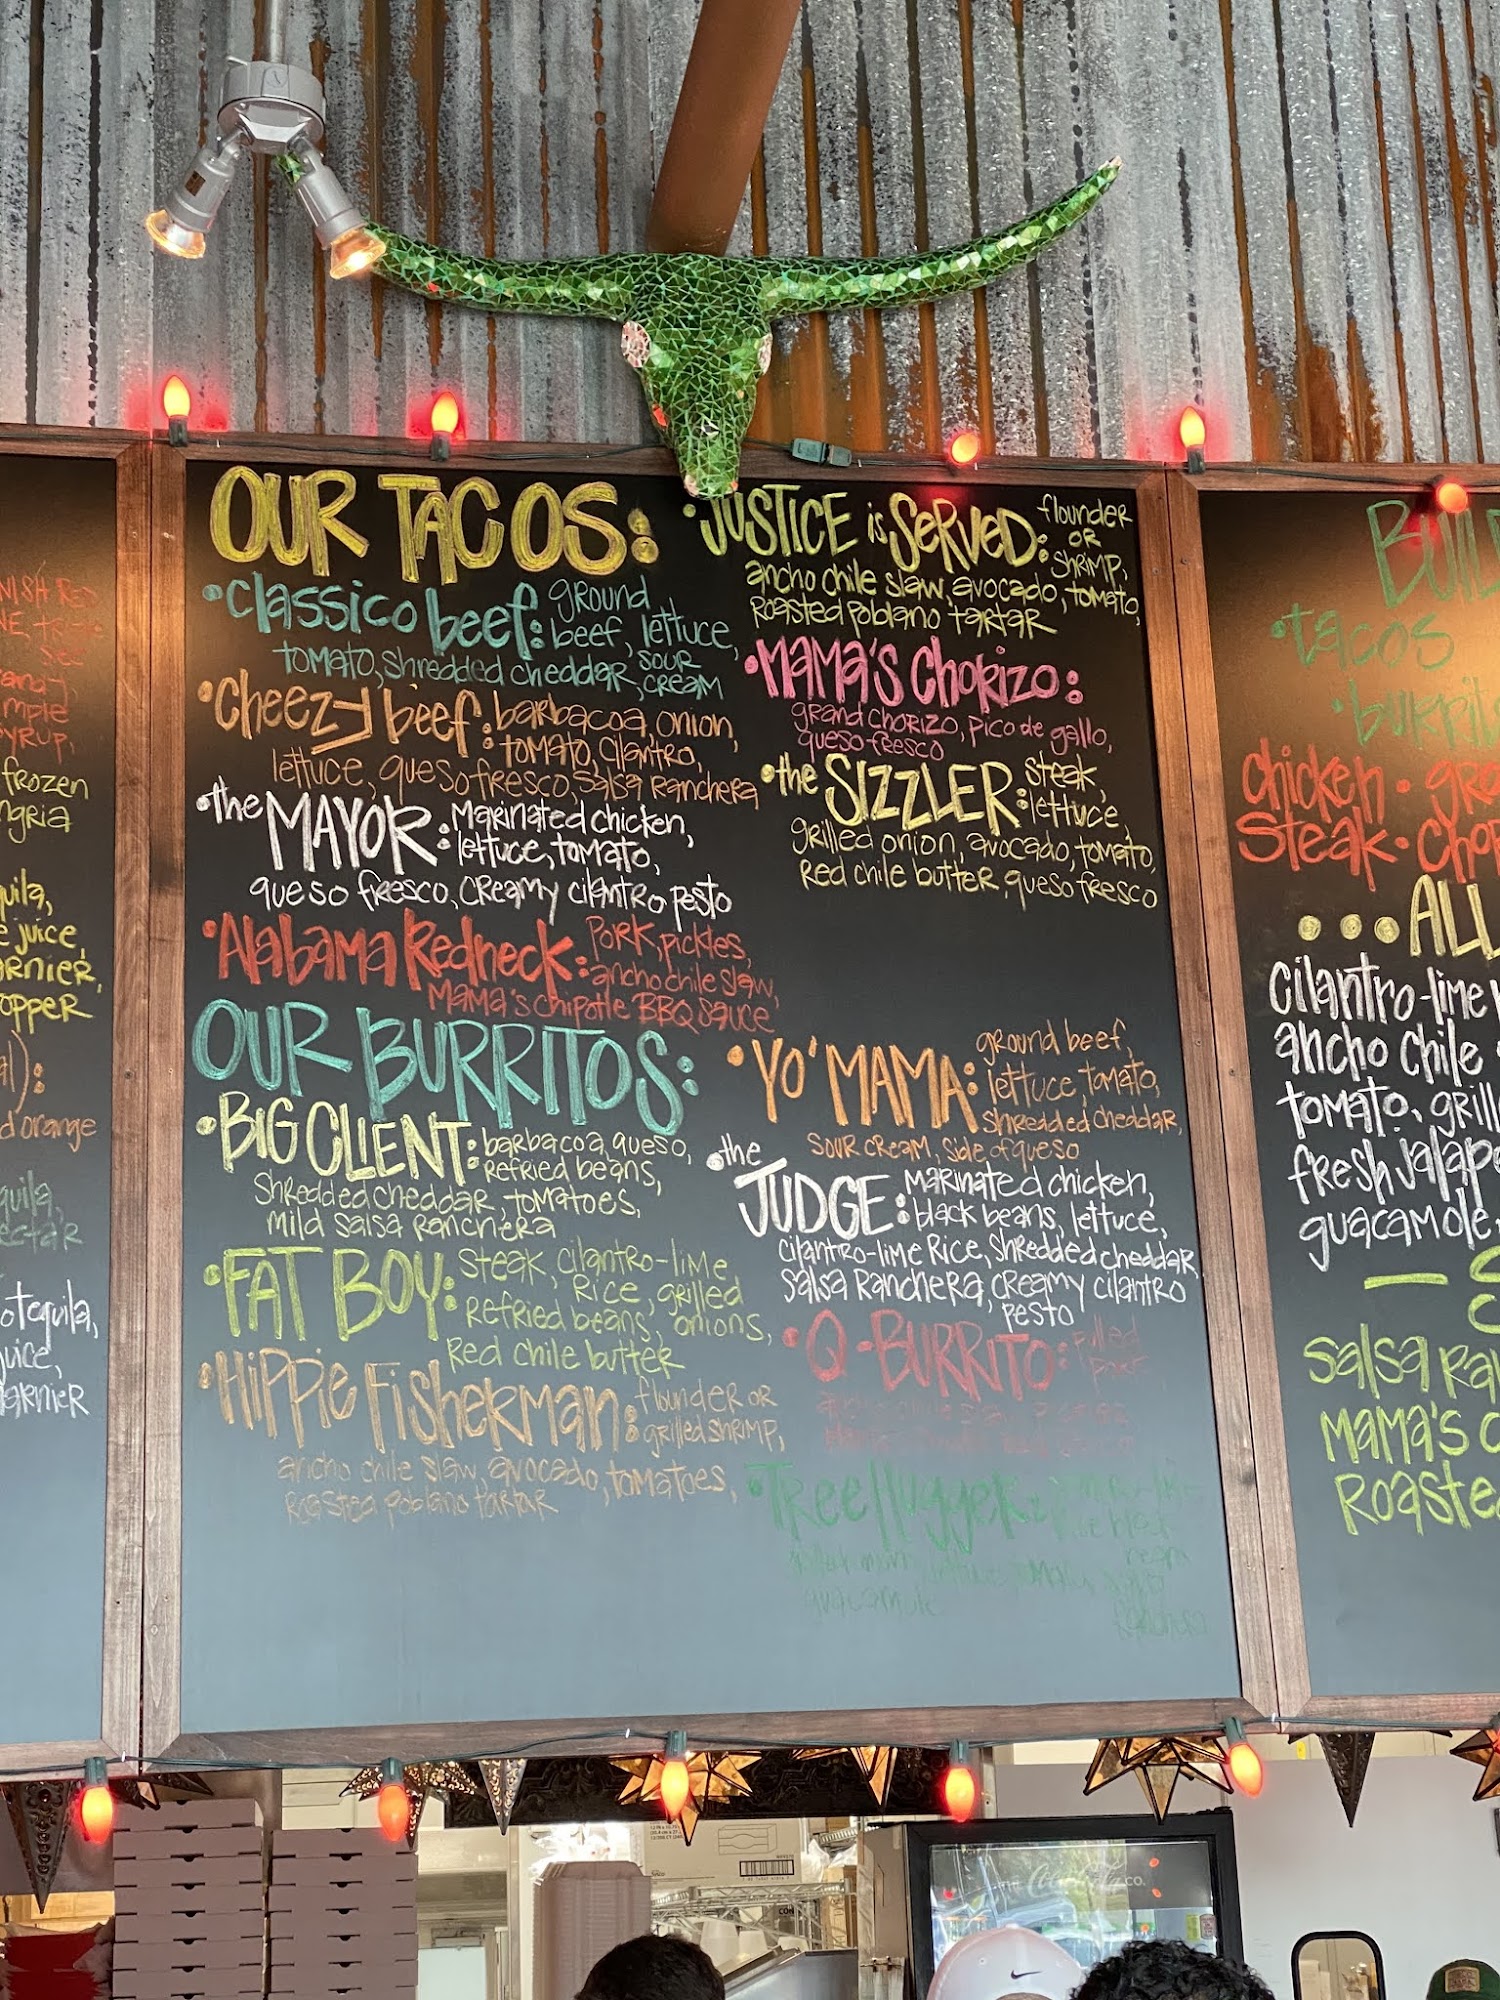 OUR TACOS:
•Classico beef: ground
beef, lettuce,
tomato, shredded cheddar, sour
cream
•Cheezy beef: barbacoa, onion,
tomato, cilantro,
lettuce, queso fresco, salsa Ranchera
•the MAYOR: Marinated chicken,
lettuce, tomato,
queso fresco, creamy cilantro pesto
•Alabama Redneck: Pork, pickles,
ancho chile slaw,
Mama's chipotle BBQ sauce
•JUSTICE is SERVED: flounder
OR
shrimp,
ancho chile slaw, avocado, tomato,
Roasted Poblano tartar
•MAMA'S CHORIZO:
grand chorizo, pico de gallo,
queso fresco
•the SIZZLER: steak,
lettuce,
grilled onion, avocado, tomato,
Red chile butter, queso fresco
OUR BURRITOS:
•BIG CLIENT: barbacoa, queso,
refried beans,
shredded cheddar, tomatoes,
mild salsa Ranchera
•FAT BOY: steak, cilantro-lime
Rice, grilled
Refried beans, onions,
Red chile butter
•Hippie Fisherman: flounder OR
grilled shrimp,
ancho chile slaw, avocado, tomatoes,
Roasted Poblano tartar
•YO' MAMA: ground beef,
lettuce, tomato,
shredded cheddar,
sour cream, side of queso
•the JUDGE: Marinated chicken,
black beans, lettuce,
cilantro-lime Rice, shredded cheddar
salsa Ranchera, creamy cilantro
pesto
•Q-BURRITO: Pulled
•Tree Hugger:
guacamole
frozen
juice
orange
BUILD
•tacos
chicken •
steak •
... ALL
cilantro-lime
ancho chile
tomato,
fresh jalape
guacamole,
salsa Ra
MAMA'S C
Roasted
Coca-Cola